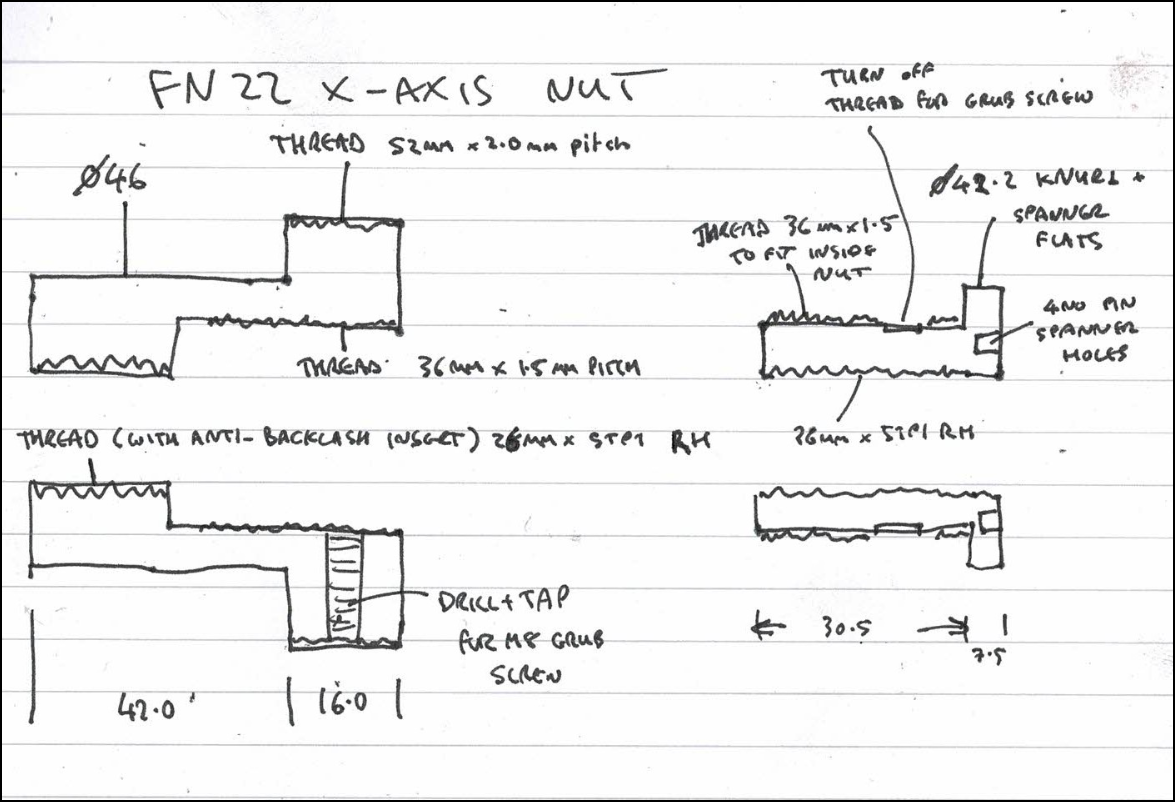 FN22 X-AXIS NUT
THREAD 52mm x 2.0mm pitch
Ø46
THREAD 36mm x 1.5mm PITCH
THREAD (WITH ANTI-BACKLASH INSERT) 26mm x 5TPI RH
DRILL + TAP
FOR M8 GRUB
SCREW
42.0
16.0
TURN OFF
THREAD FOR GRUB SCREW
Ø42.2 KNURL +
SPANNER
FLATS
THREAD 36mm x 1.5
TO FIT INSIDE
NUT
4 NO PIN
SPANNER
HOLES
26mm x 5TPI RH
30.5
7.5